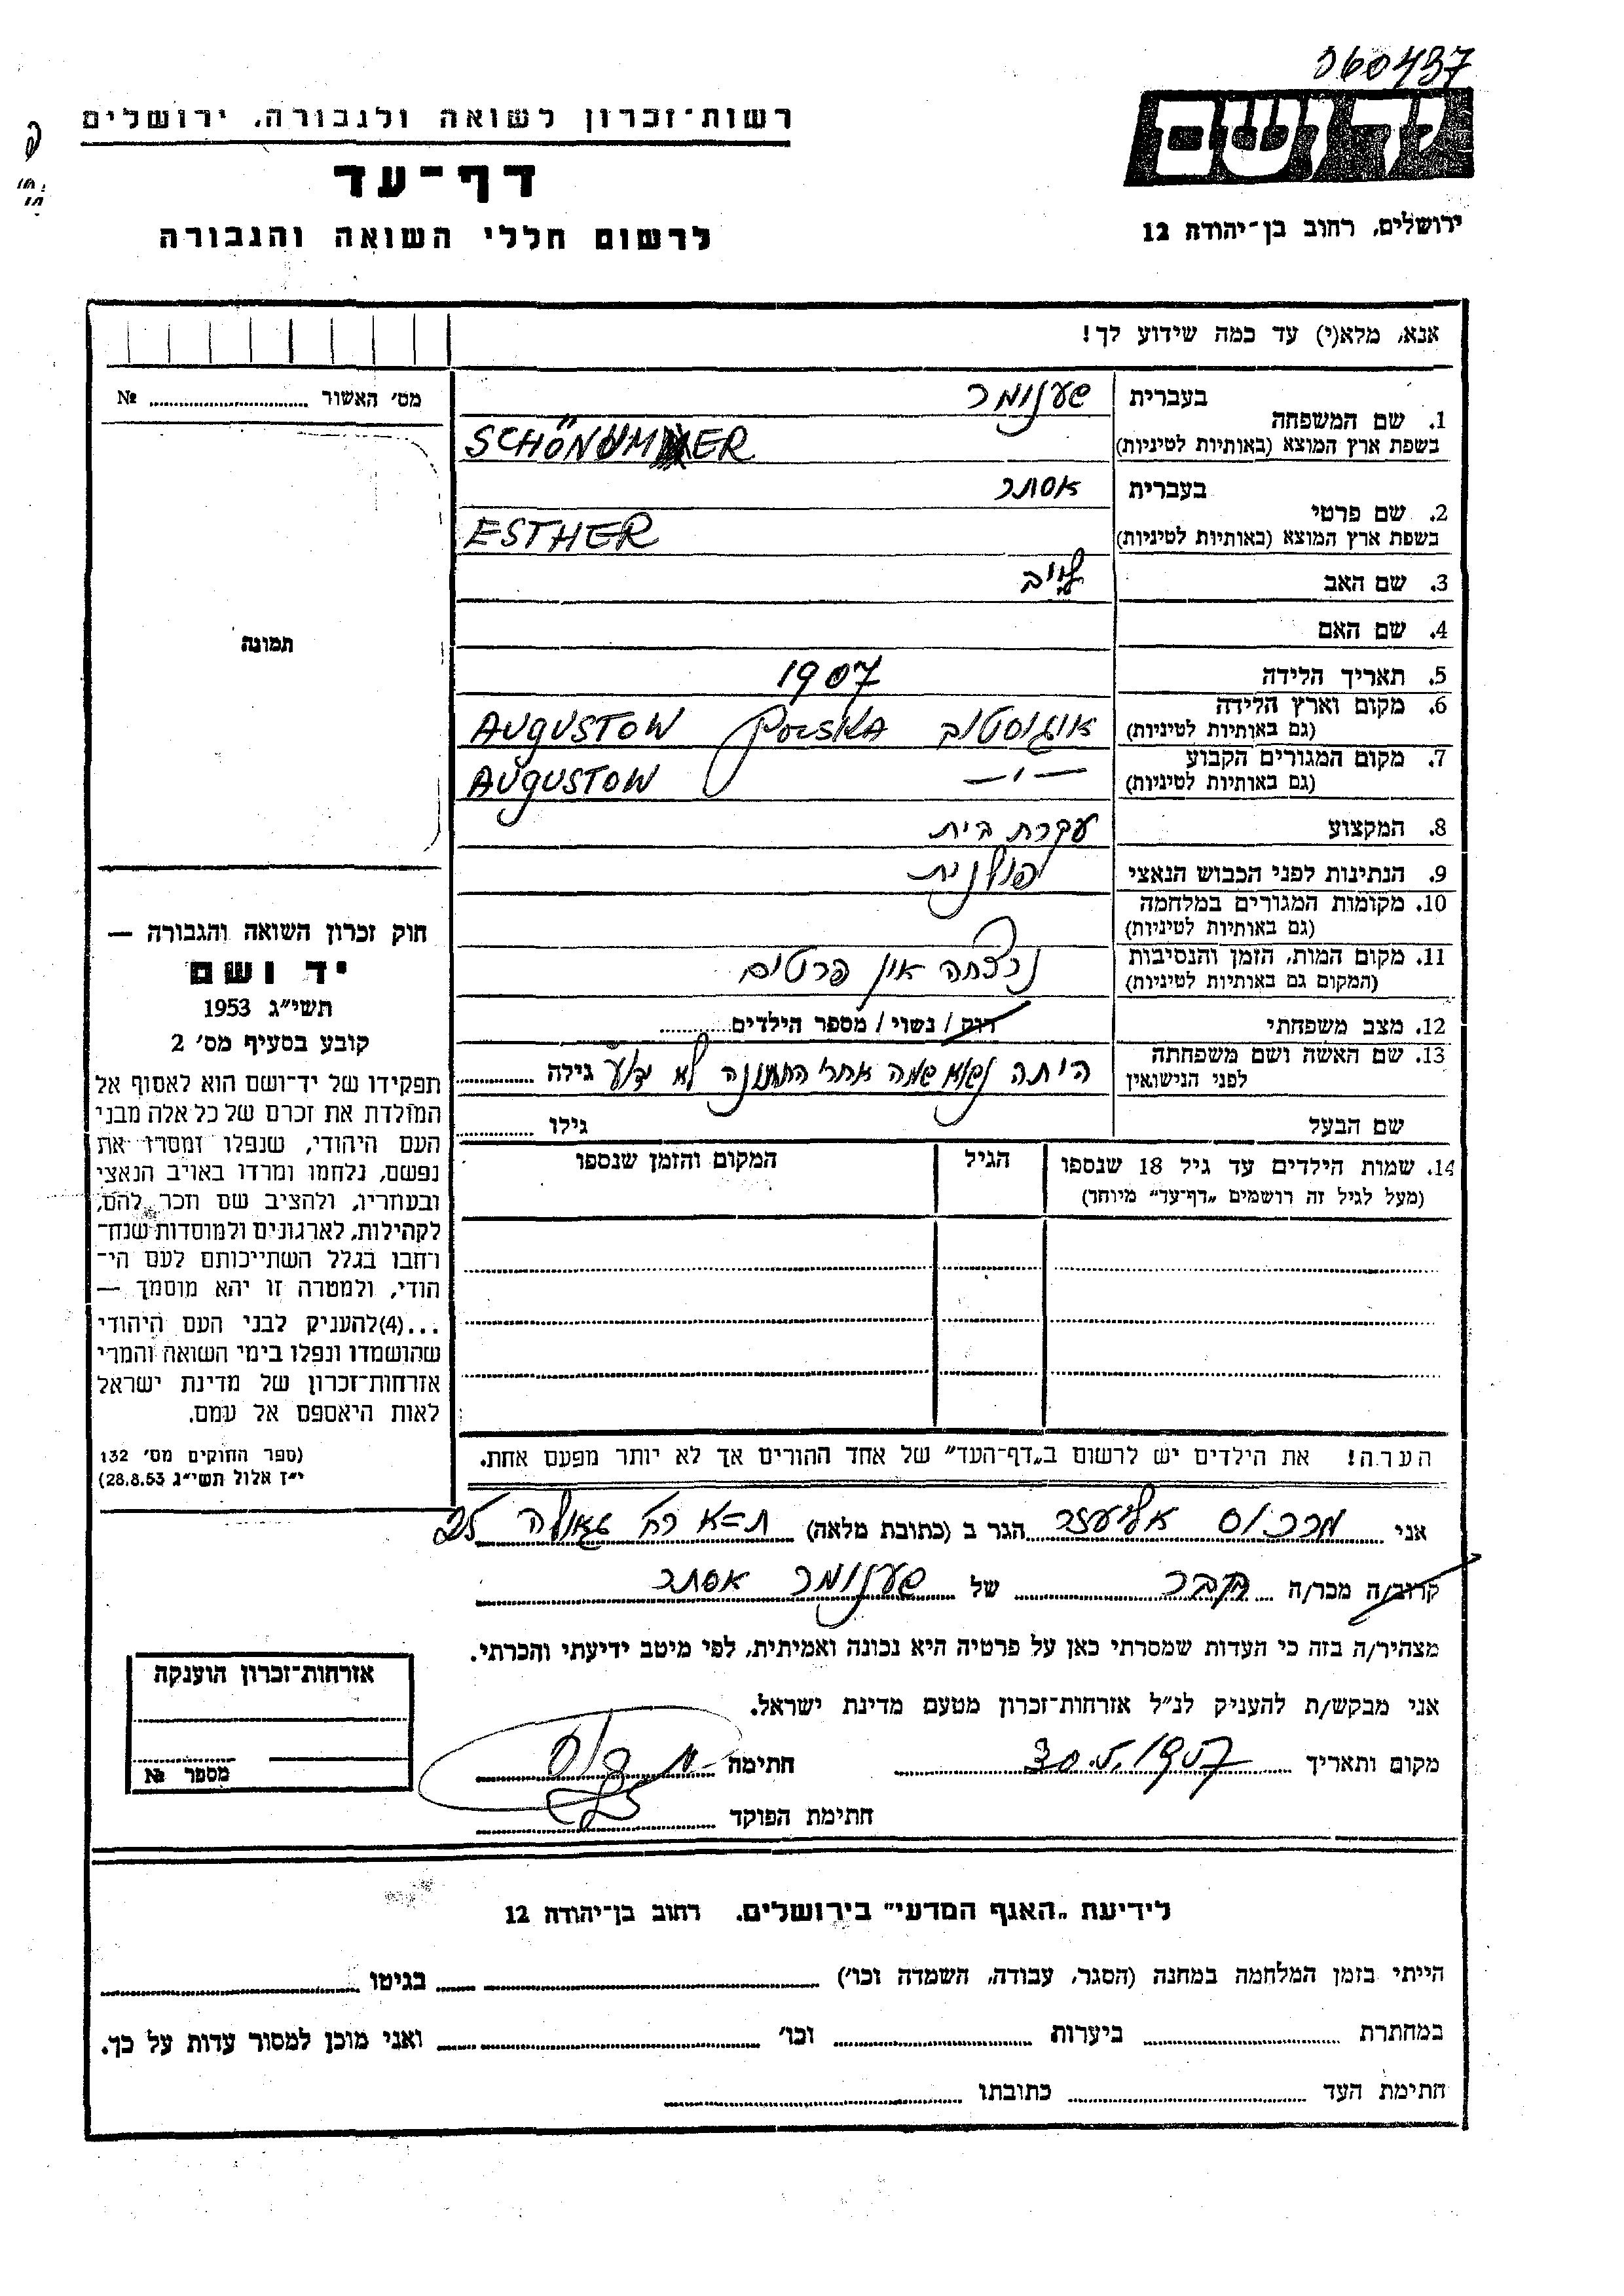 060437
יד ושם
ירושלים, רחוב בן-יהודה 12
רשות-זכרון לשואה ולגבורה, ירושלים
דף-עד
לרשום חללי השואה והגבורה
אנא, מלא(י) עד כמה שידוע לך!
מס׳ האשור № ........
תמונה
1. שם המשפחה בעברית שענומר
בשפת ארץ המוצא (באותיות לטיניות) SCHÖNUMER
2. שם פרטי בעברית אסתר
בשפת ארץ המוצא (באותיות לטיניות) ESTHER
3. שם האב לייב
4. שם האם
5. תאריך הלידה 1907
6. מקום וארץ הלידה (גם באותיות לטיניות) אוגוסטוב POLSKA AUGUSTOW
7. מקום המגורים הקבוע (גם באותיות לטיניות) — ״ — AUGUSTOW
8. המקצוע עקרת בית
9. הנתינות לפני הכבוש הנאצי פולנית
10. מקומות המגורים במלחמה (גם באותיות לטיניות)
11. מקום המות, הזמן והנסיבות (המקום גם באותיות לטיניות) נרצחה אין פרטים
12. מצב משפחתי רווק / נשוי / מספר הילדים ........
13. שם האשה ושם משפחתה לפני הנישואין היתה נשואה שמה אחרי החתונה לא ידוע גילה ........
שם הבעל גילו ........
14. שמות הילדים עד גיל 18 שנספו (מעל לגיל זה רושמים „דף-עד״ מיוחד) הגיל המקום והזמן שנספו
הערה! את הילדים יש לרשום ב„דף-העד״ של אחד ההורים אך לא יותר מפעם אחת.
חוק זכרון השואה והגבורה —
יד ושם
תשי״ג 1953
קובע בסעיף מס׳ 2
תפקידו של יד-ושם הוא לאסוף אל
המולדת את זכרם של כל אלה מבני
העם היהודי, שנפלו ומסרו את
נפשם, נלחמו ומרדו באויב הנאצי
ובעוזריו, ולהציב שם וזכר להם,
לקהילות, לארגונים ולמוסדות שנח-
רבו בגלל השתייכותם לעם הי-
הודי, ולמטרה זו יהא מוסמך —
...(4)להעניק לבני העם היהודי
שהושמדו ונפלו בימי השואה והמרי
אזרחות-זכרון של מדינת ישראל
לאות היאספם אל עמם.
(ספר החוקים מס׳ 132
י״ז אלול תשי״ג 28.8.53)
אני מרכוס אליעזר הגר ב (כתובת מלאה) ת-א רח׳ גאולה 25
קרוב/ה מכר/ה חבר של שענומר אסתר
מצהיר/ה בזה כי העדות שמסרתי כאן על פרטיה היא נכונה ואמיתית, לפי מיטב ידיעתי והכרתי.
אני מבקש/ת להעניק לנ״ל אזרחות-זכרון מטעם מדינת ישראל.
מקום ותאריך 30.5.1957 חתימה
חתימת הפוקד
אזרחות-זכרון הוענקה
מספר №
לידיעת „האגף המדעי״ בירושלים. רחוב בן-יהודה 12
הייתי בזמן המלחמה במחנה (הסגר, עבודה, השמדה וכו׳) ........ בגיטו ........
במחתרת ........ ביערות ........ וכו׳ ........ ואני מוכן למסור עדות על כך.
חתימת העד ........ כתובתו ........